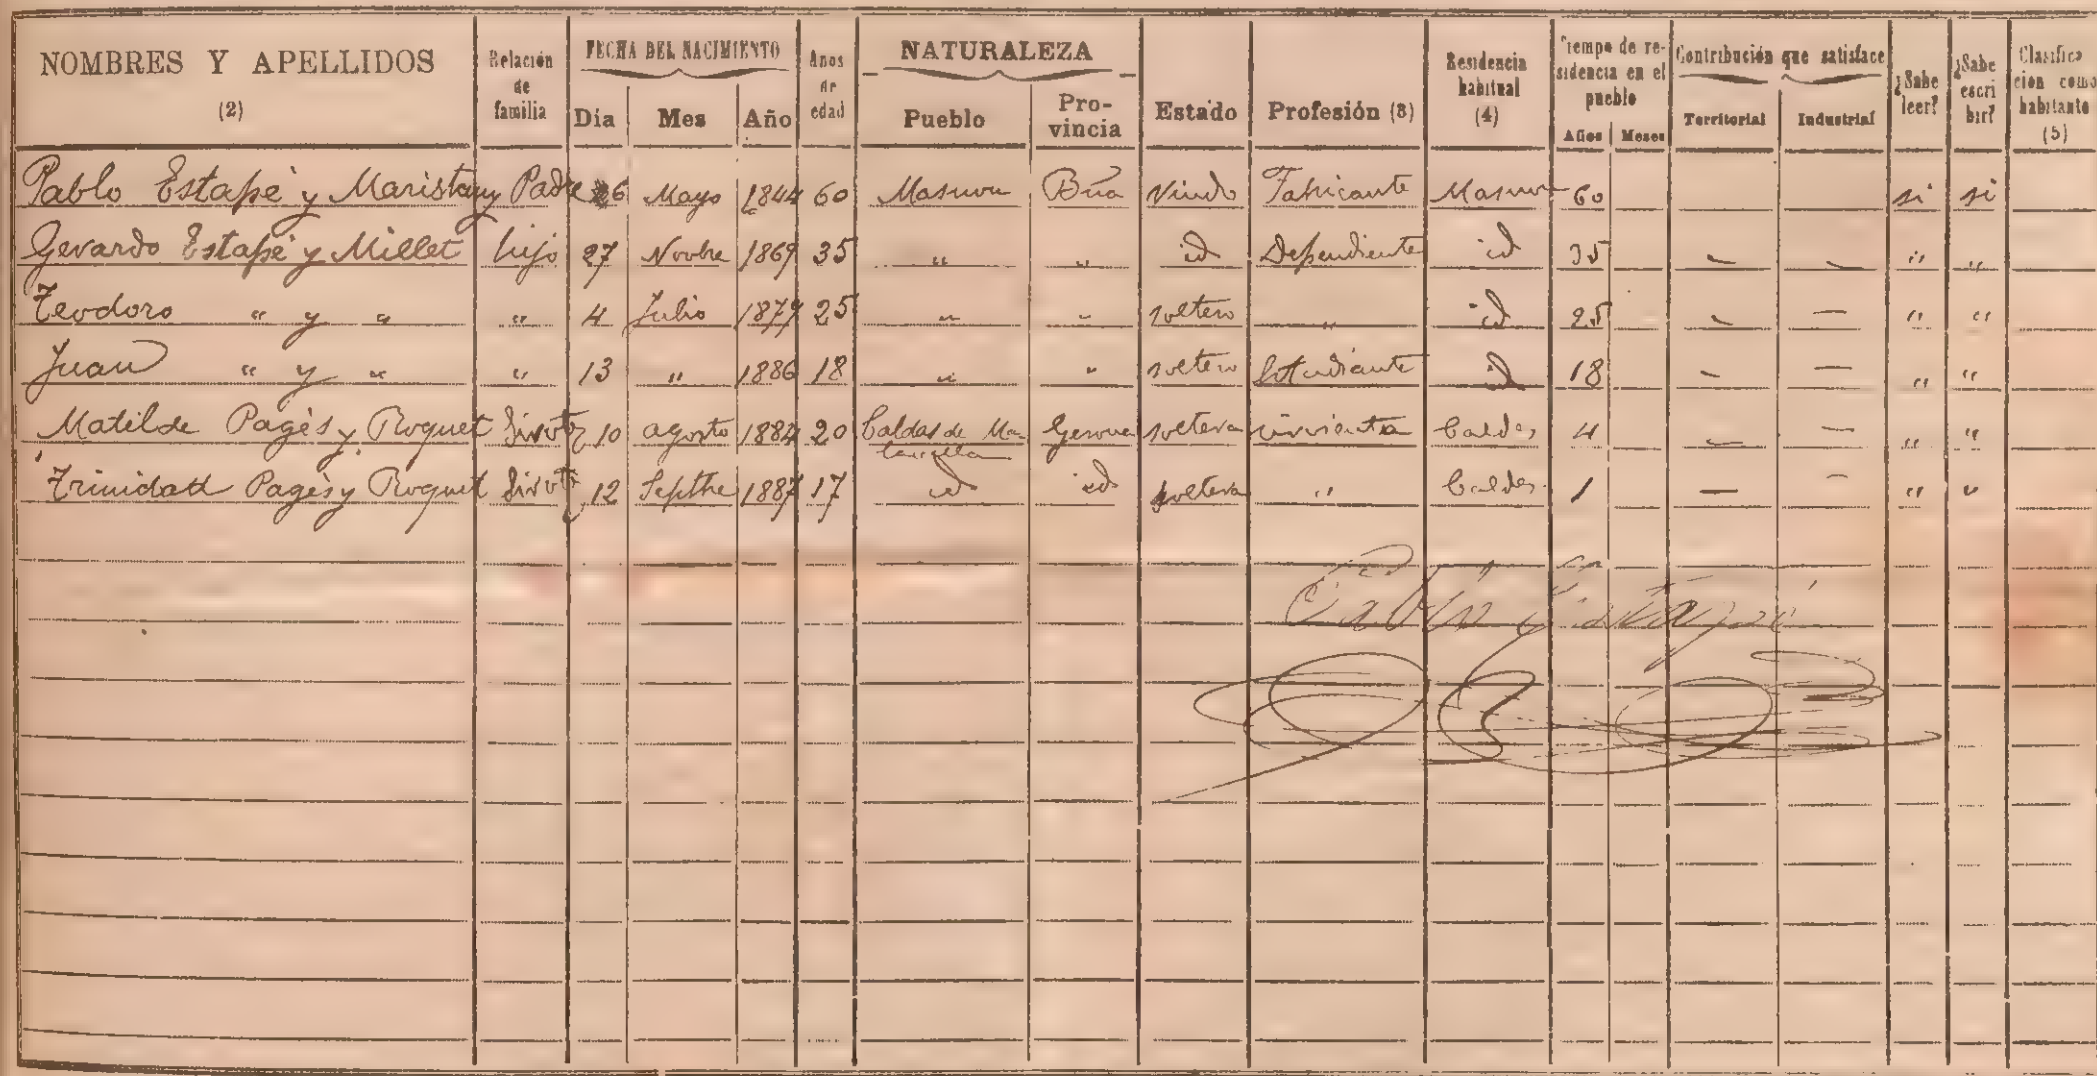 NOMBRES Y APELLIDOS (2) Relación de familia FECHA DEL NACIMIENTO Día Mes Año Años de edad NATURALEZA Pueblo Pro-vincia Estado Profesión (3) Residencia habitual (4) Tiempo de re-sidencia en el pueblo Años Meses Contribución que satisface Territorial Industrial ¿Sabe leer? ¿Sabe escribir? Clasificación como habitante (5)
Pablo Estapé y Maristany Padre 26 Mayo 1844 60 Masnou Bna Viudo Fabricante Masnou 60 si si
Gerardo Estapé y Millet hijo 27 Novbre 1869 35 " " id Dependiente id 35 — — " "
Teodoro " y " " 4 Julio 1879 25 " " soltero " id 25 — — " "
Juan " y " " 13 " 1886 18 " " soltero Estudiante id 18 — — " "
Matilde Pagés y Roquet 10 agosto 1884 20 Caldas de Ma- Gerona soltera sirvienta Caldes 4 — — " "
Trinidad Pagés y Roquet 12 Septbre 1887 17 id id soltera " Caldes 1 — — " "
Pablo Estapé